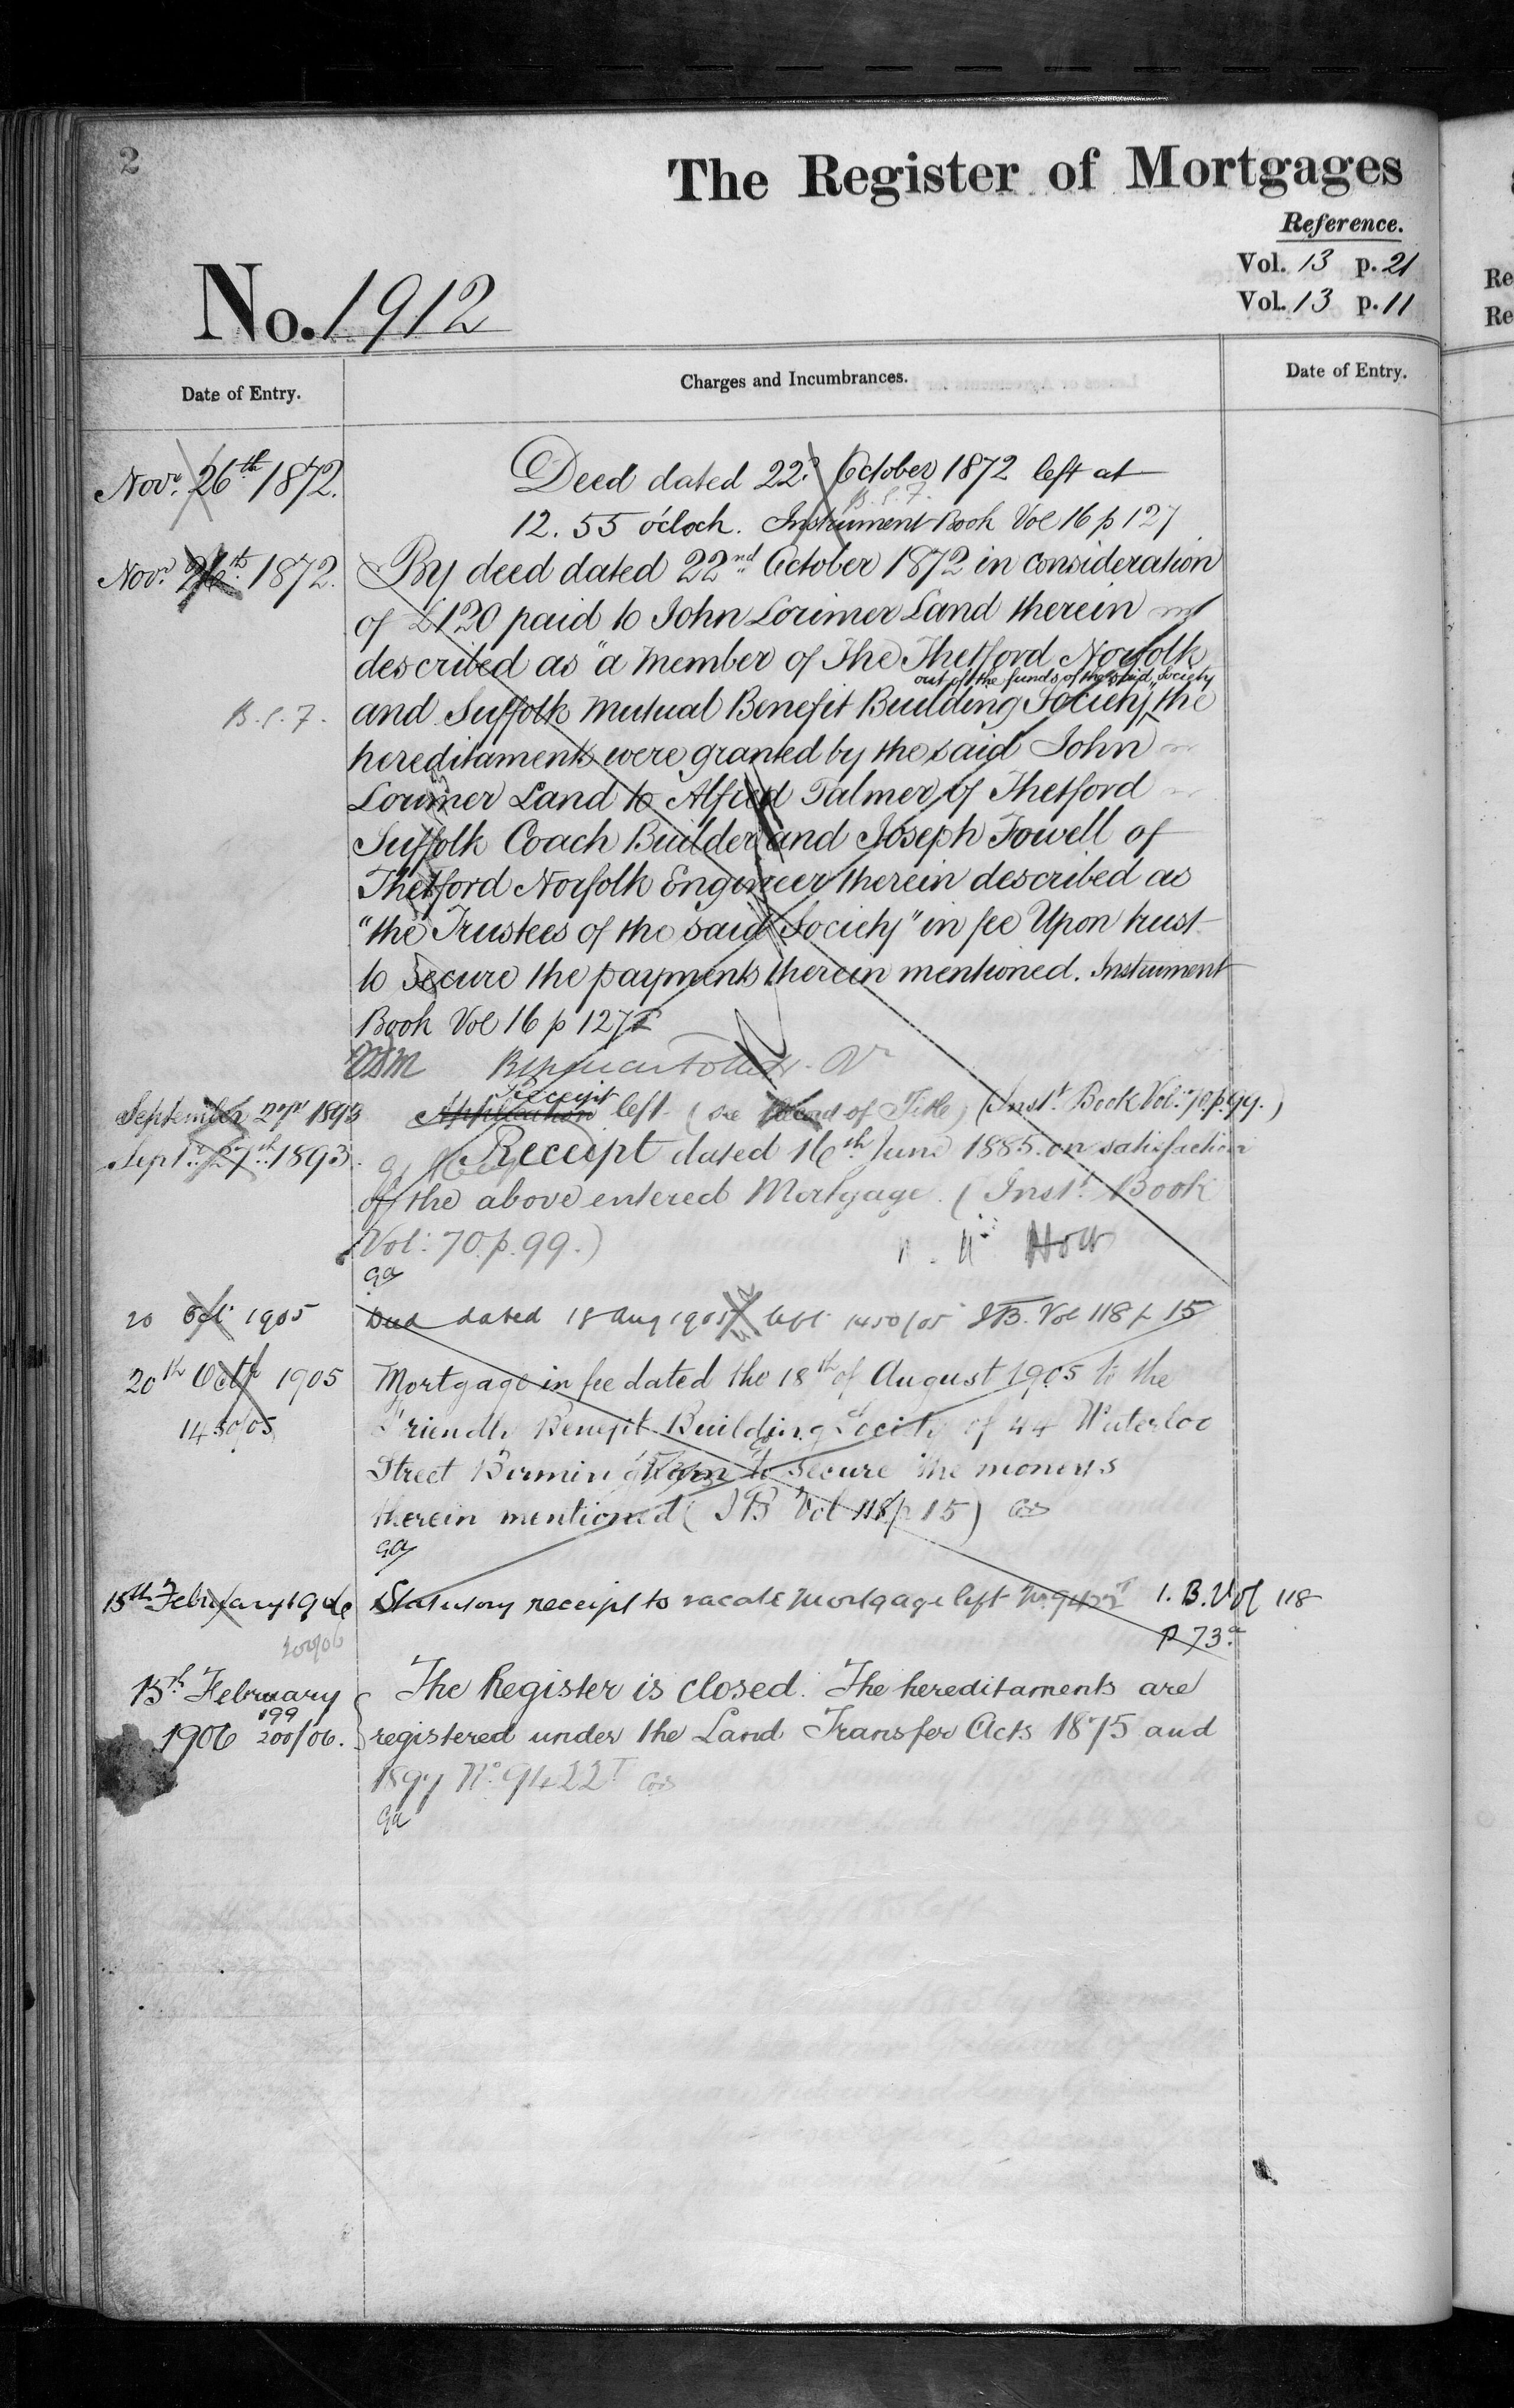 2
The Register of Mortgages
Reference.
Vol. 13 p. 21
Vol. 13 p. 11
No. 1912
Date of Entry.
Charges and Incumbrances.
Date of Entry.
Novr. 26th 1872.
Deed dated 22d October 1872 left at
B.C.7.
12.55 o'clock. Instrument Book Vol 16 p 127
Novr. 26th 1872.
By deed dated 22nd October 1872 in consideration
of £120 paid to John Lorimer Land therein
described as "a member of The Thetford Norfolk
out of the funds of the said Society
and Suffolk Mutual Benefit Building Society" the
B.C.7.
hereditaments were granted by the said John
Lorimer Land to Alfred Palmer of Thetford
Suffolk Coach Builder and Joseph Fowell of
Thetford Norfolk Engineer therein described as
"the Trustees of the said Society" in fee Upon trust
to secure the payments therein mentioned. Instrument
Book Vol 16 p 127
September 27th 1893
Receipt
Application left (see Record of Title) (Inst. Book Vol: 70. p. 99.)
Sept. 27th 1893.
Receipt dated 16th June 1885 on satisfaction
of the above entered Mortgage. (Inst. Book
Vol: 70. p. 99.)
ga
20 Oct 1905
Deed dated 18 Aug 1905 left 1450/05 I B. Vol 118 p 15
20th Oct 1905
1450/05
Mortgage in fee dated the 18th of August 1905 to the
Friendly Benefit Building Society of 44 Waterloo
Street Birmingham to secure the moneys
therein mentioned (I B Vol 118 p 15)
ga
15th February 1906
Statutory receipt to vacate Mortgage left No 9422T I. B. Vol 118
p 73a
200/06
15th February
1906 199 200/06.
The Register is closed. The hereditaments are
registered under the Land Transfer Acts 1875 and
1897 No. 9422T
ga
Re
Re